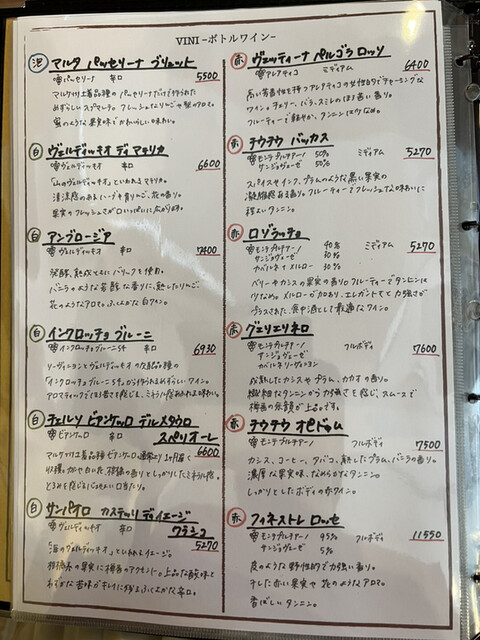 VINI -ボトルワイン-
泡 マルケ パッセリーナ ブリュット
パッセリーナ 辛口 5500
マルケ州土着品種のパッセリーナだけで作られた
めずらしいスプマンテ。フレッシュなりんごや梨のアロマ。
蜜のような果実味でかわいらしい味わい。
白 ヴェルディッキオ ディ マテリカ
ヴェルディッキオ 辛口 6600
「山のヴェルディッキオ」といわれるマテリカ。
清涼感のあるハーブや青りんご、花の香り。
果実のフレッシュさが口いっぱいに広がります。
白 アンブロージア
ヴェルディッキオ 辛口 7400
発酵、熟成ともにバリックを使用。
バニラのような芳醇な香りに、熟したりんご、
花のようなアロマ。ふくよかな白ワイン。
白 インクロッチョ ブルーニ
インクロッチョブルーニ54 辛口 6930
ソーヴィニヨンとヴェルディッキオの交配品種の
「インクロッチョブルーニ54」から作られるめずらしいワイン。
白 チェルソ ビアンケッロ デル メタウロ
スペリオーレ
ビアンケッロ 辛口 6600
マルケ州土着品種ビアンケッロを通常より1ヶ月遅く
収穫。かがやき白いた、柑橘の香りとしっかりしたミネラル感。
とろみを感じるバランスよい口当たり。
白 サンパオロ カステッリ ディ イエージ
クラシコ
ヴェルディッキオ 辛口 5270
「海のヴェルディッキオ」といわれるイエージ。
柑橘系の果実に樽香のアクセント。上品な酸味と
わずかな苦味がキレイに残るふくよかな辛口。
赤 ヴェッティーナ ペルゴラ ロッソ
アレアティコ ミディアム 6400
高い芳香性を持つアレアティコの女性的でチャーミングな
ワイン。チェリー、バラ、スミレのほる甘い香り。
フルーティーで軽やか、タンニンはひかえめ。
赤 チウチウ バッカス
モンテプルチアーノ 50% ミディアム 5270
サンジョヴェーゼ 50%
スパイスやインク、プラムのような黒い果実の
凝縮感ある香り。フルーティーでフレッシュな味わいに
程よいタンニン。
赤 ロゾラッチョ
モンテプルチアーノ 40% ミディアム 5270
サンジョヴェーゼ 30%
カベルネ×メルロー 30%
ベリーやカシスの果実の香り。フルーティーでタンニンは
少なめ。メルローが加わり、エレガントさと力強さが
プラスされた、食中酒として最適なワイン。
赤 グェリエリネロ
モンテプルチアーノ フルボディ 7600
サンジョヴェーゼ
カベルネソーヴィニヨン
成熟したカシスやプラム、カカオの香り。
繊細なタンニンながら力強さを感じ、スムースで
樽香の余韻が上品です。
赤 チウチウ オピドゥム
モンテプルチアーノ フルボディ 7500
カシス、コーヒー、タバコ、熟したプラム、バニラの香り。
濃厚な果実味、なめらかなタンニン。
しっかりとしたボディの赤ワイン。
赤 フィネストレ ロッセ
モンテプルチアーノ 95% フルボディ 11550
サンジョヴェーゼ 5%
皮のような野性的で力強い香り。
干した赤い果実や花のようなアロマ。
香ばしいタンニン。